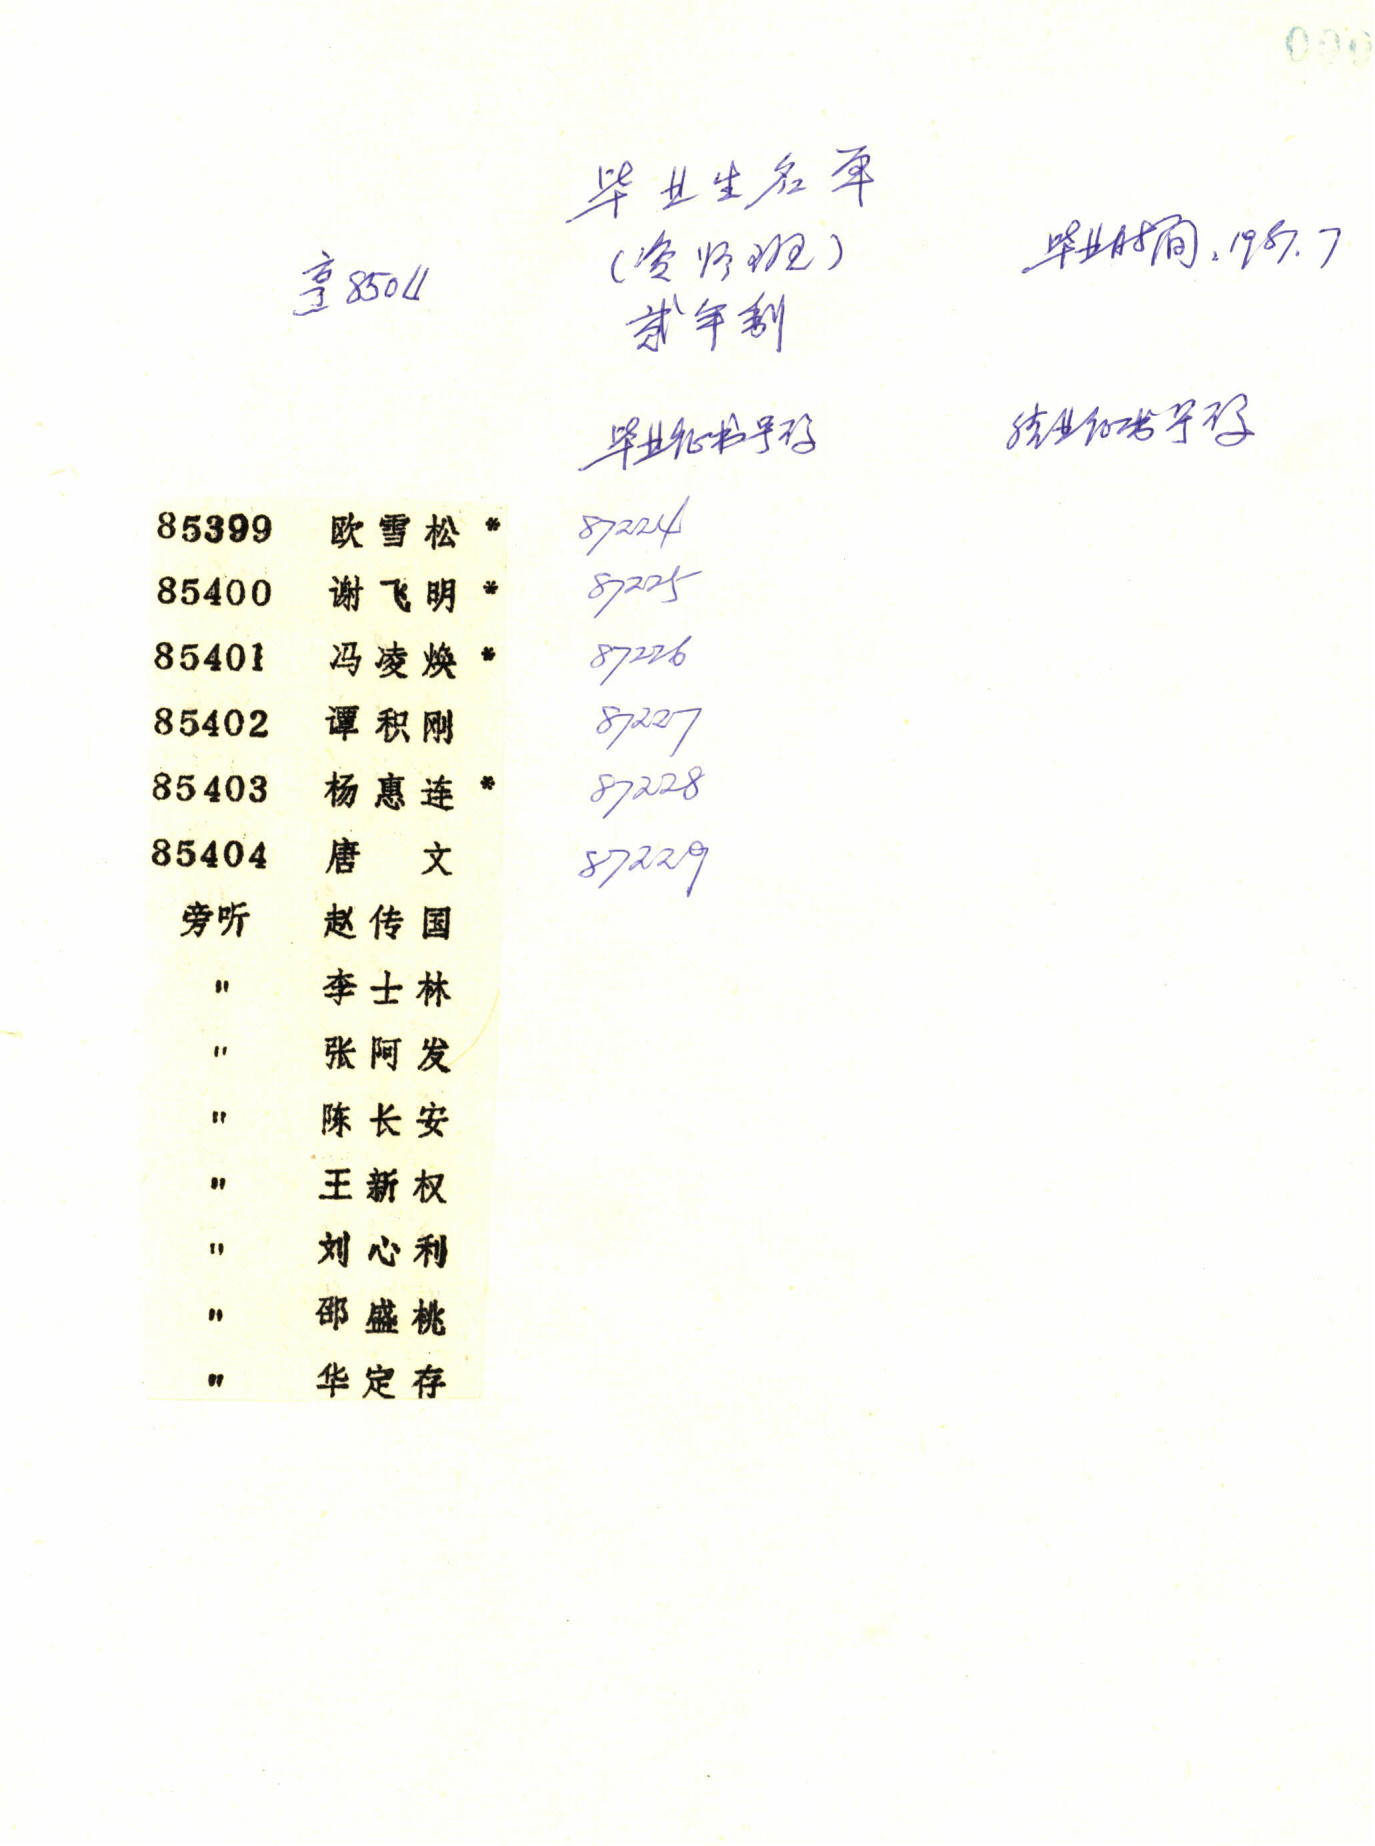 毕业生名单
(资师班)
贰年制
85011
毕业时间:1987.7
毕业证书号码
结业证书号码
85399 欧雪松 * 87224
85400 谢飞明 * 87225
85401 冯凌焕 * 87226
85402 谭积刚 87227
85403 杨惠连 * 87228
85404 唐文 87229
旁听 赵传国
" 李士林
" 张阿发
" 陈长安
" 王新权
" 刘心利
" 邵盛桃
" 华定存